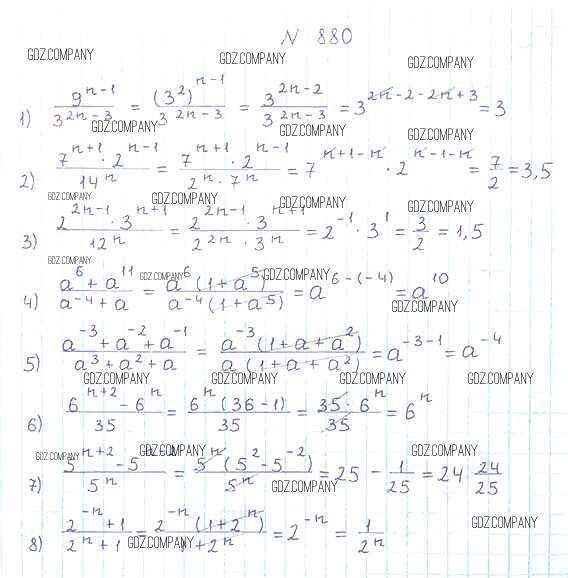 N 880
GDZ.COMPANY GDZ.COMPANY GDZ.COMPANY
1) 9^(n-1) / 3^(2n-3) = (3^2)^(n-1) / 3^(2n-3) = 3^(2n-2) / 3^(2n-3) = 3^(2n-2-2n+3) = 3
GDZ.COMPANY GDZ.COMPANY GDZ.COMPANY
2) 7^(n+1) · 2^(n-1) / 14^n = 7^(n+1) · 2^(n-1) / 2^n · 7^n = 7^(n+1-n) · 2^(n-1-n) = 7/2 = 3,5
GDZ.COMPANY GDZ.COMPANY GDZ.COMPANY GDZ.COMPANY
3) 2^(2n-1) · 3^(n+1) / 12^n = 2^(2n-1) · 3^(n+1) / 2^(2n) · 3^n = 2^(-1) · 3^1 = 3/2 = 1,5
GDZ.COMPANY GDZ.COMPANY GDZ.COMPANY
4) a^6 + a^11 / a^(-4) + a = a^6 (1 + a^5) / a^(-4) (1 + a^5) = a^(6-(-4)) = a^10
GDZ.COMPANY
5) a^(-3) + a^(-2) + a^(-1) / a^3 + a^2 + a = a^(-3) (1 + a + a^2) / a (1 + a + a^2) = a^(-3-1) = a^(-4)
GDZ.COMPANY GDZ.COMPANY GDZ.COMPANY GDZ.COMPANY
6) 6^(n+2) - 6^n / 35 = 6^n (36-1) / 35 = 35 · 6^n / 35 = 6^n
GDZ.COMPANY GDZ.COMPANY GDZ.COMPANY
7) 5^(n+2) - 5 / 5^n = 5^n (5^2 - 5^(-2)) / 5^n = 25 - 1/25 = 24 24/25
GDZ.COMPANY GDZ.COMPANY
8) 2^(-n) + 1 / 2^n + 1 = 2^(-n) (1 + 2^n) / 1 + 2^n = 2^(-n) = 1/2^n
GDZ.COMPANY